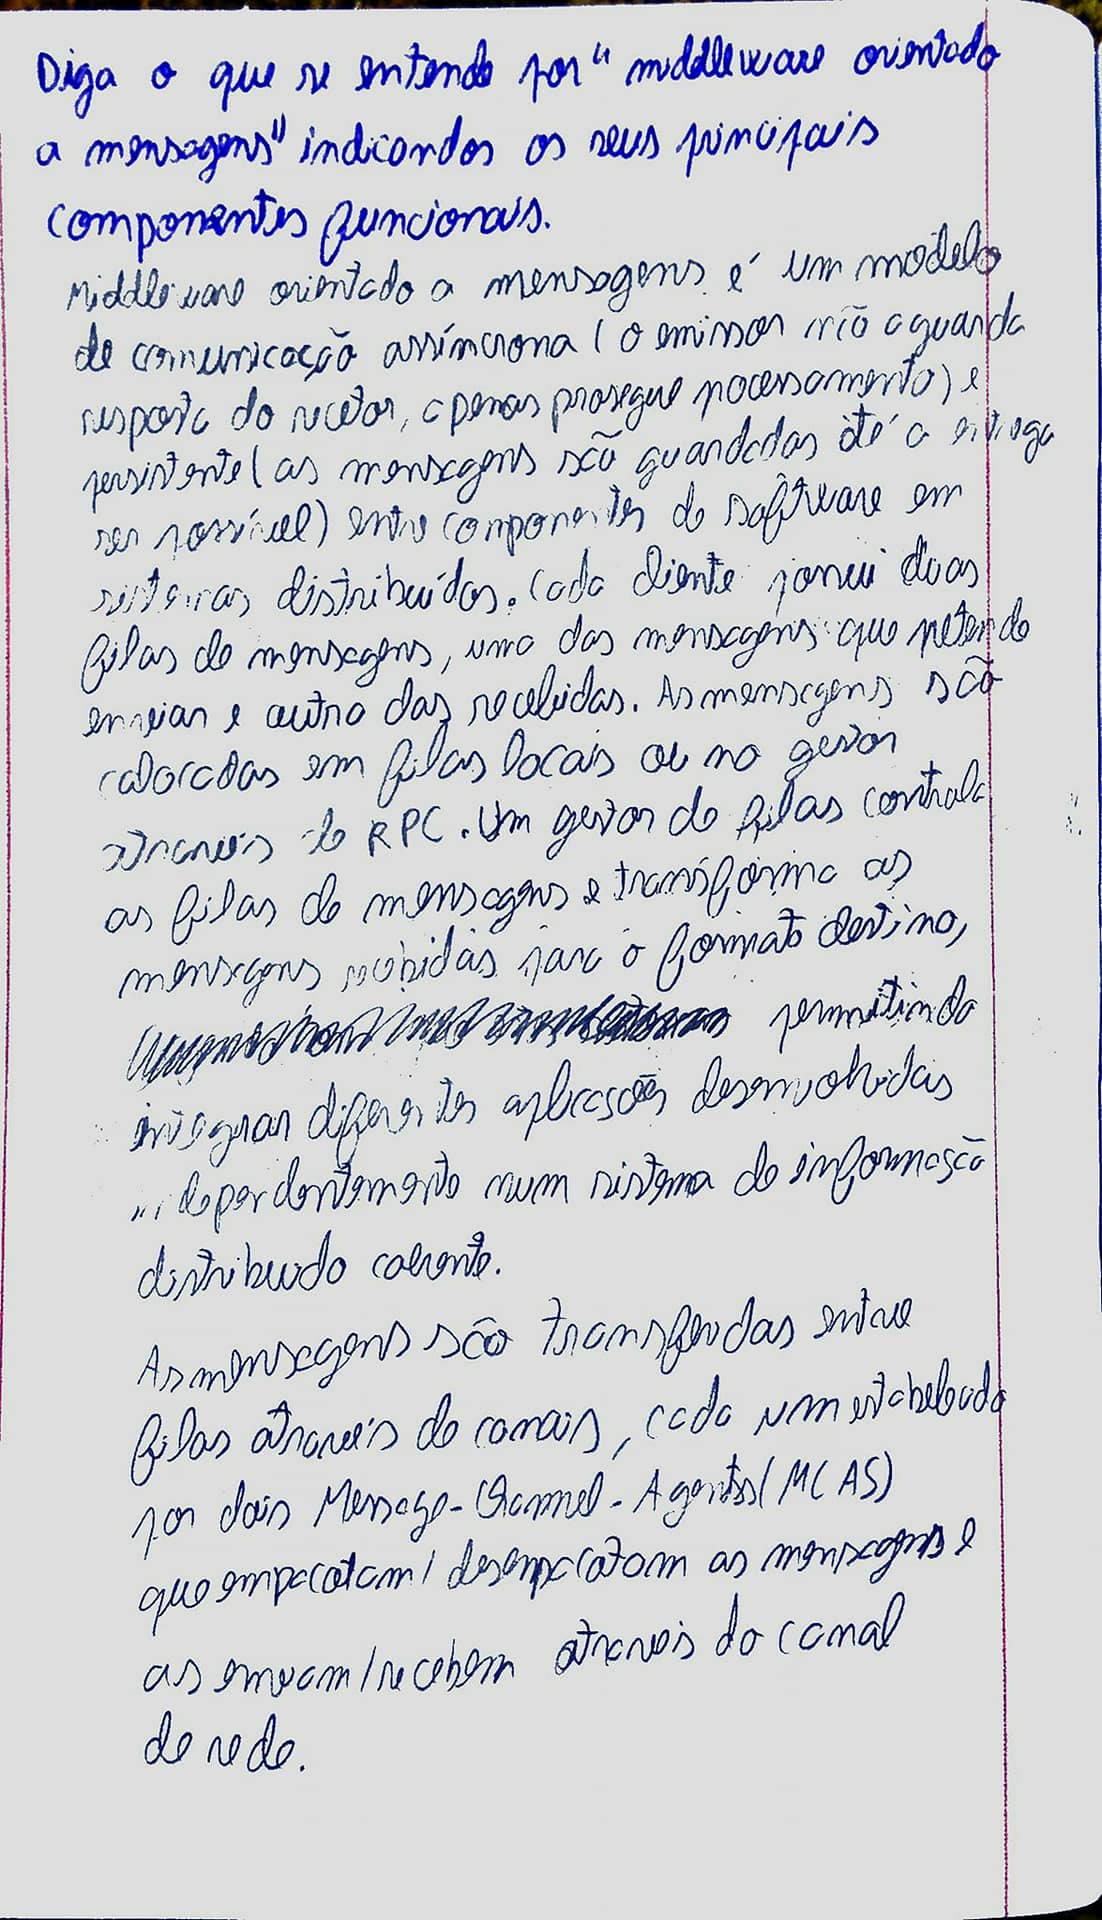 Diga o que se entende por "middleware orientado
a mensagens" indicandos os seus principais
componentes funcionais.
Middleware orientado a mensagens é um modelo
de comunicação assíncrona (o emissor não aguarda
resposta do recetor, apenas prosegue processamento) e
persistente (as mensagens são guardadas até a entrega
ser possível) entre componentes de software em
sistemas distribuídos. Cada cliente possui duas
filas de mensagens, uma das mensagens que pretende
enviar e outra das recebidas. As mensagens são
colocadas em filas locais ou no gestor
através de RPC. Um gestor de filas controla
as filas de mensagens e transforma as
mensagens recebidas para o formato destino,
permitindo
integrar diferentes aplicações desenvolvidas
independentemente num sistema de informação
distribuido coerente.
As mensagens são transferidas entre
filas através de canais, cada um estabelecido
por dois Message-Channel-Agents (MCAS)
que empacotam/desempacotam as mensagens e
as enviam/recebem através do canal
de rede.